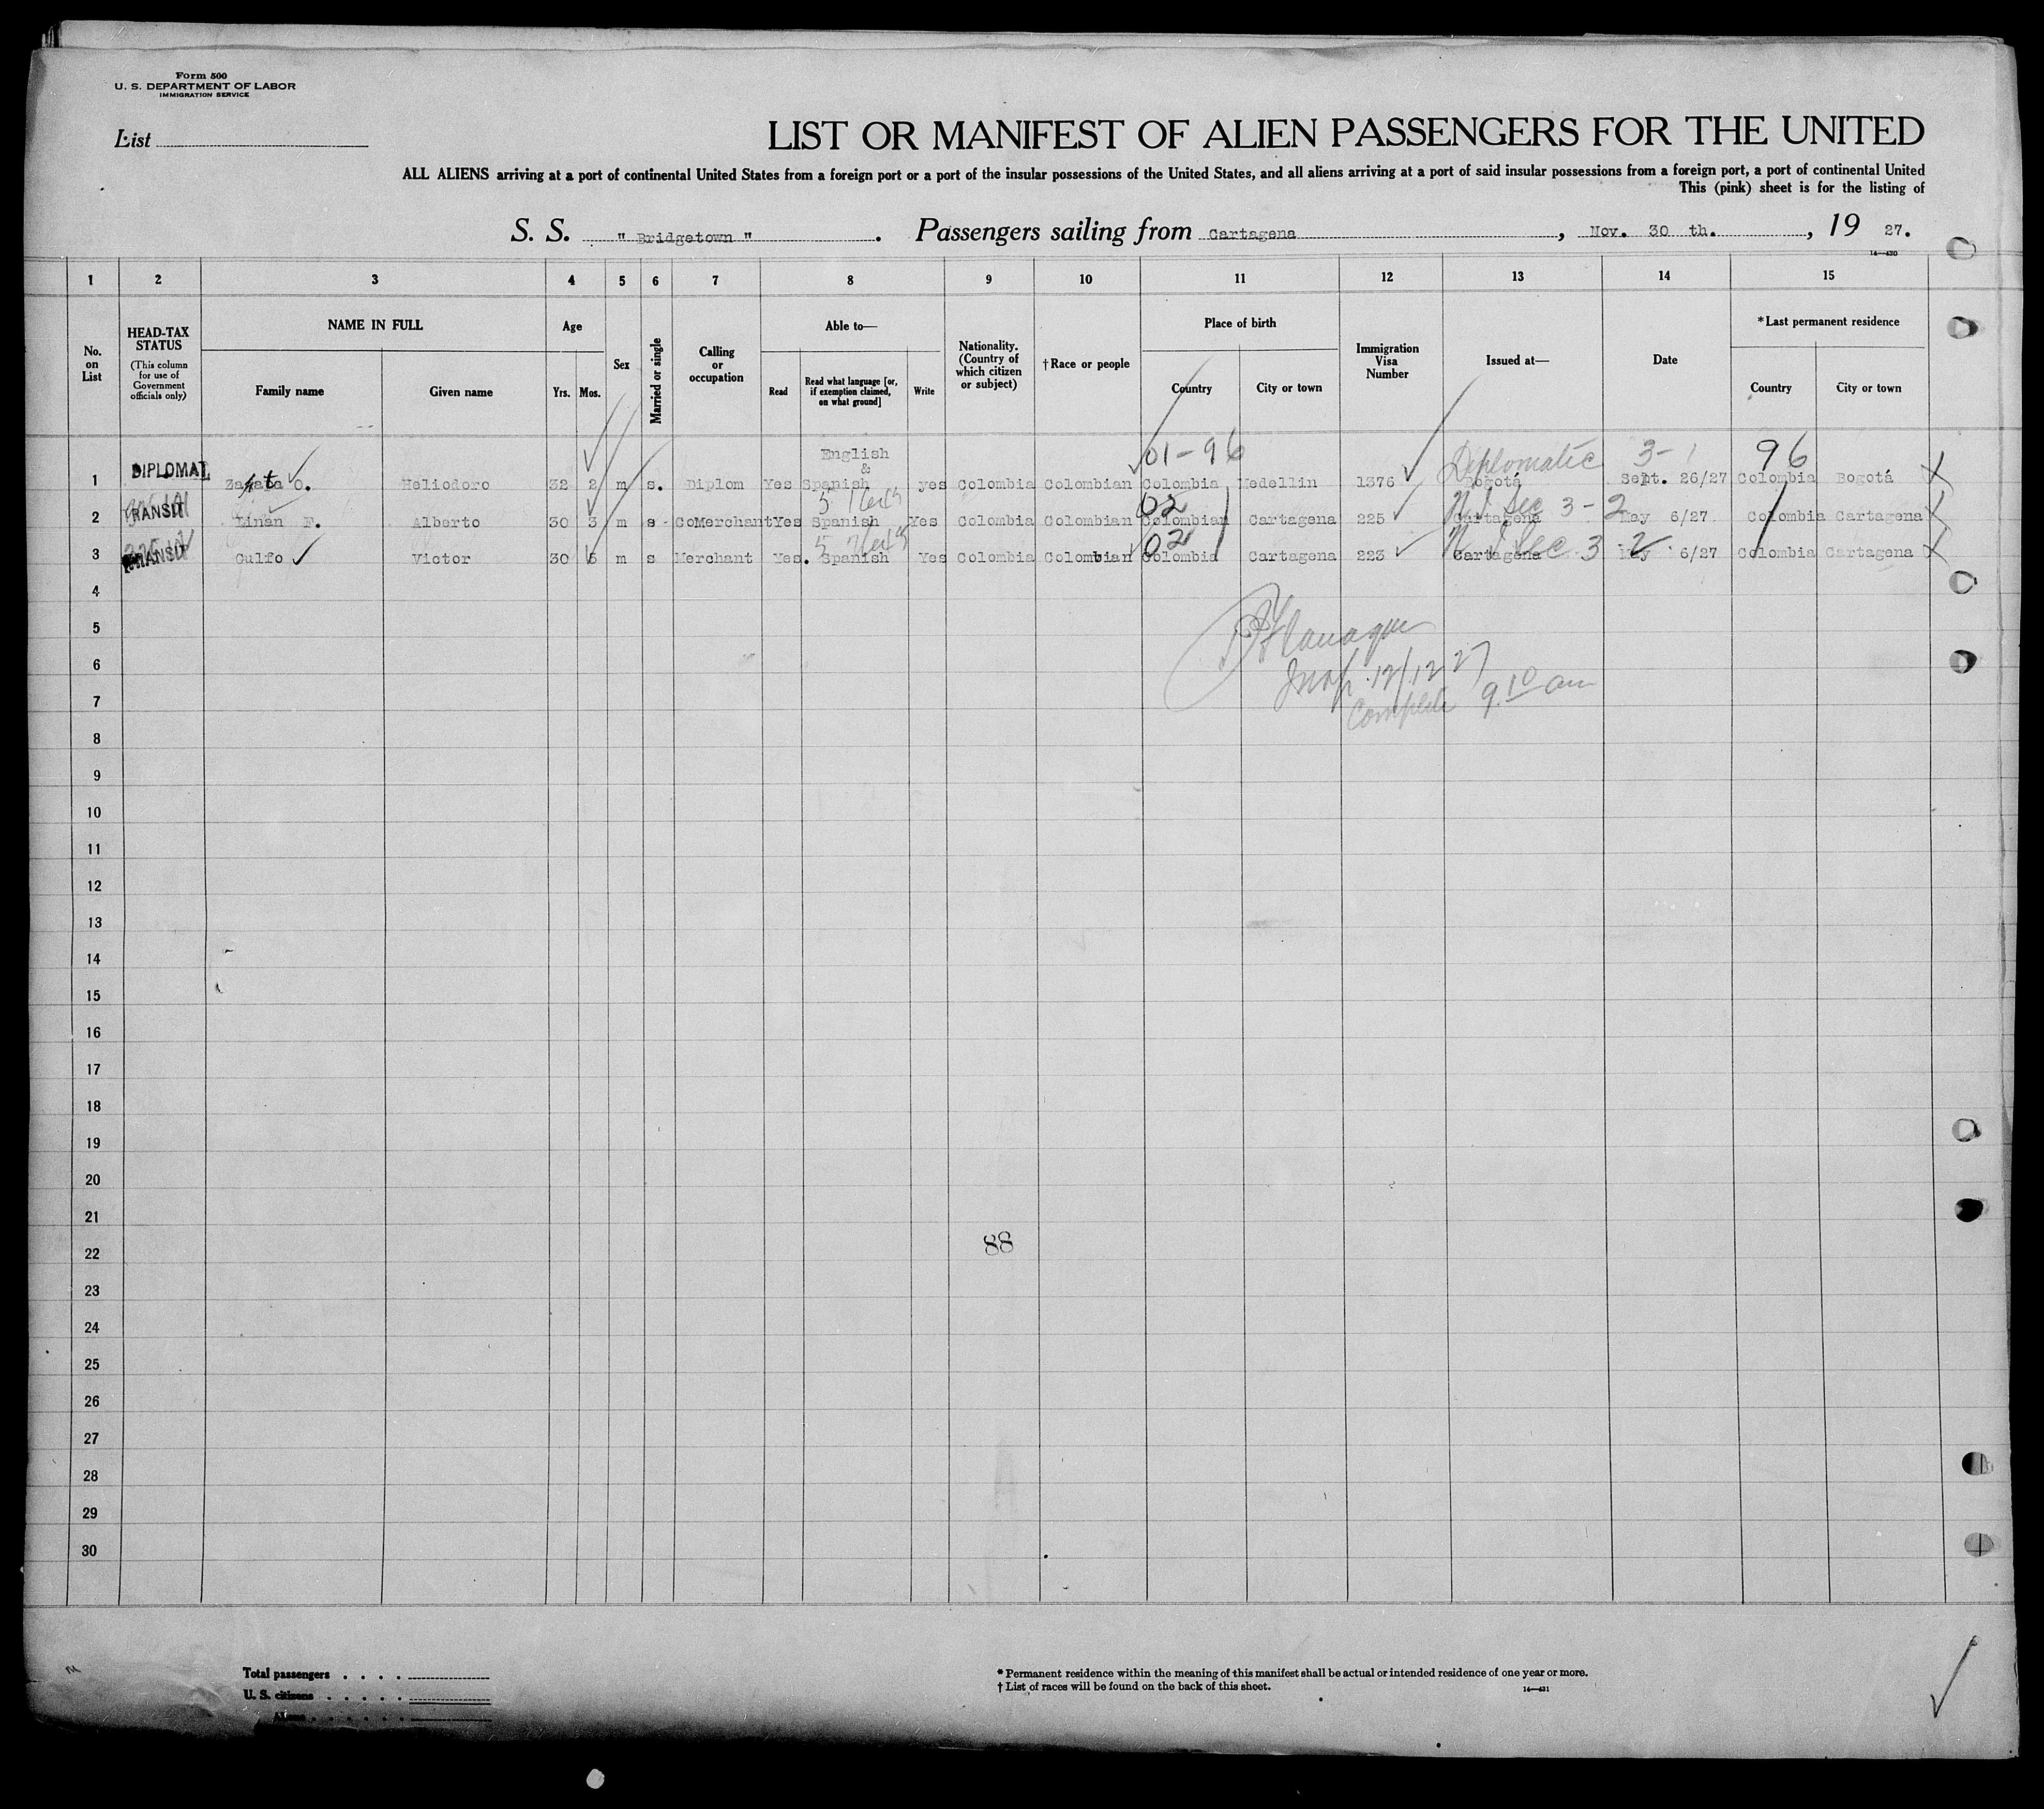 Form 500
U. S. DEPARTMENT OF LABOR
IMMIGRATION SERVICE
List
LIST OR MANIFEST OF ALIEN PASSENGERS FOR THE UNITED
ALL ALIENS arriving at a port of continental United States from a foreign port or a port of the insular possessions of the United States, and all aliens arriving at a port of said insular possessions from a foreign port, a port of continental United
This (pink) sheet is for the listing of
S. S. " Bridgetown " . Passengers sailing from Cartagena , Nov. 30 th. , 19 27.
14—430
1 2 3 4 5 6 7 8 9 10 11 12 13 14 15
No. on List
HEAD-TAX STATUS
(This column for use of Government officials only)
NAME IN FULL
Family name Given name
Age
Yrs. Mos.
Sex
Married or single
Calling or occupation
Able to—
Read
Read what language [or, if exemption claimed, on what ground]
Write
Nationality. (Country of which citizen or subject)
†Race or people
Place of birth
Country City or town
Immigration Visa Number
Issued at—
Date
*Last permanent residence
Country City or town
English & 01-96 Diplomatic 3-1 96
1 DIPLOMAT O. Heliodoro 32 2 m s. Diplom Yes Spanish yes Colombia Colombian Colombia Medellin 1376 Bogotá Sept. 26/27 Colombia Bogotá
02 Sec 3-2
2 TRANSIT Linan F. Alberto 30 3 m s CoMerchant Yes Spanish Yes Colombia Colombian Colombian Cartagena 225 Cartagena May 6/27 Colombia Cartagena
02 Sec 3 2
3 TRANSIT Gulfo Victor 30 5 m s Merchant Yes. Spanish Yes Colombia Colombian Colombia Cartagena 223 Cartagena May 6/27 Colombia Cartagena
4
5
Flanagan
6
Insp. 12/12 27
7
Complete 9.10 am
8
9
10
11
12
13
14
15
16
17
18
19
20
21
22 88
23
24
25
26
27
28
29
30
Total passengers . . . .
U. S. citizens . . . . .
Aliens . . . . . .
* Permanent residence within the meaning of this manifest shall be actual or intended residence of one year or more.
† List of races will be found on the back of this sheet.
14—431